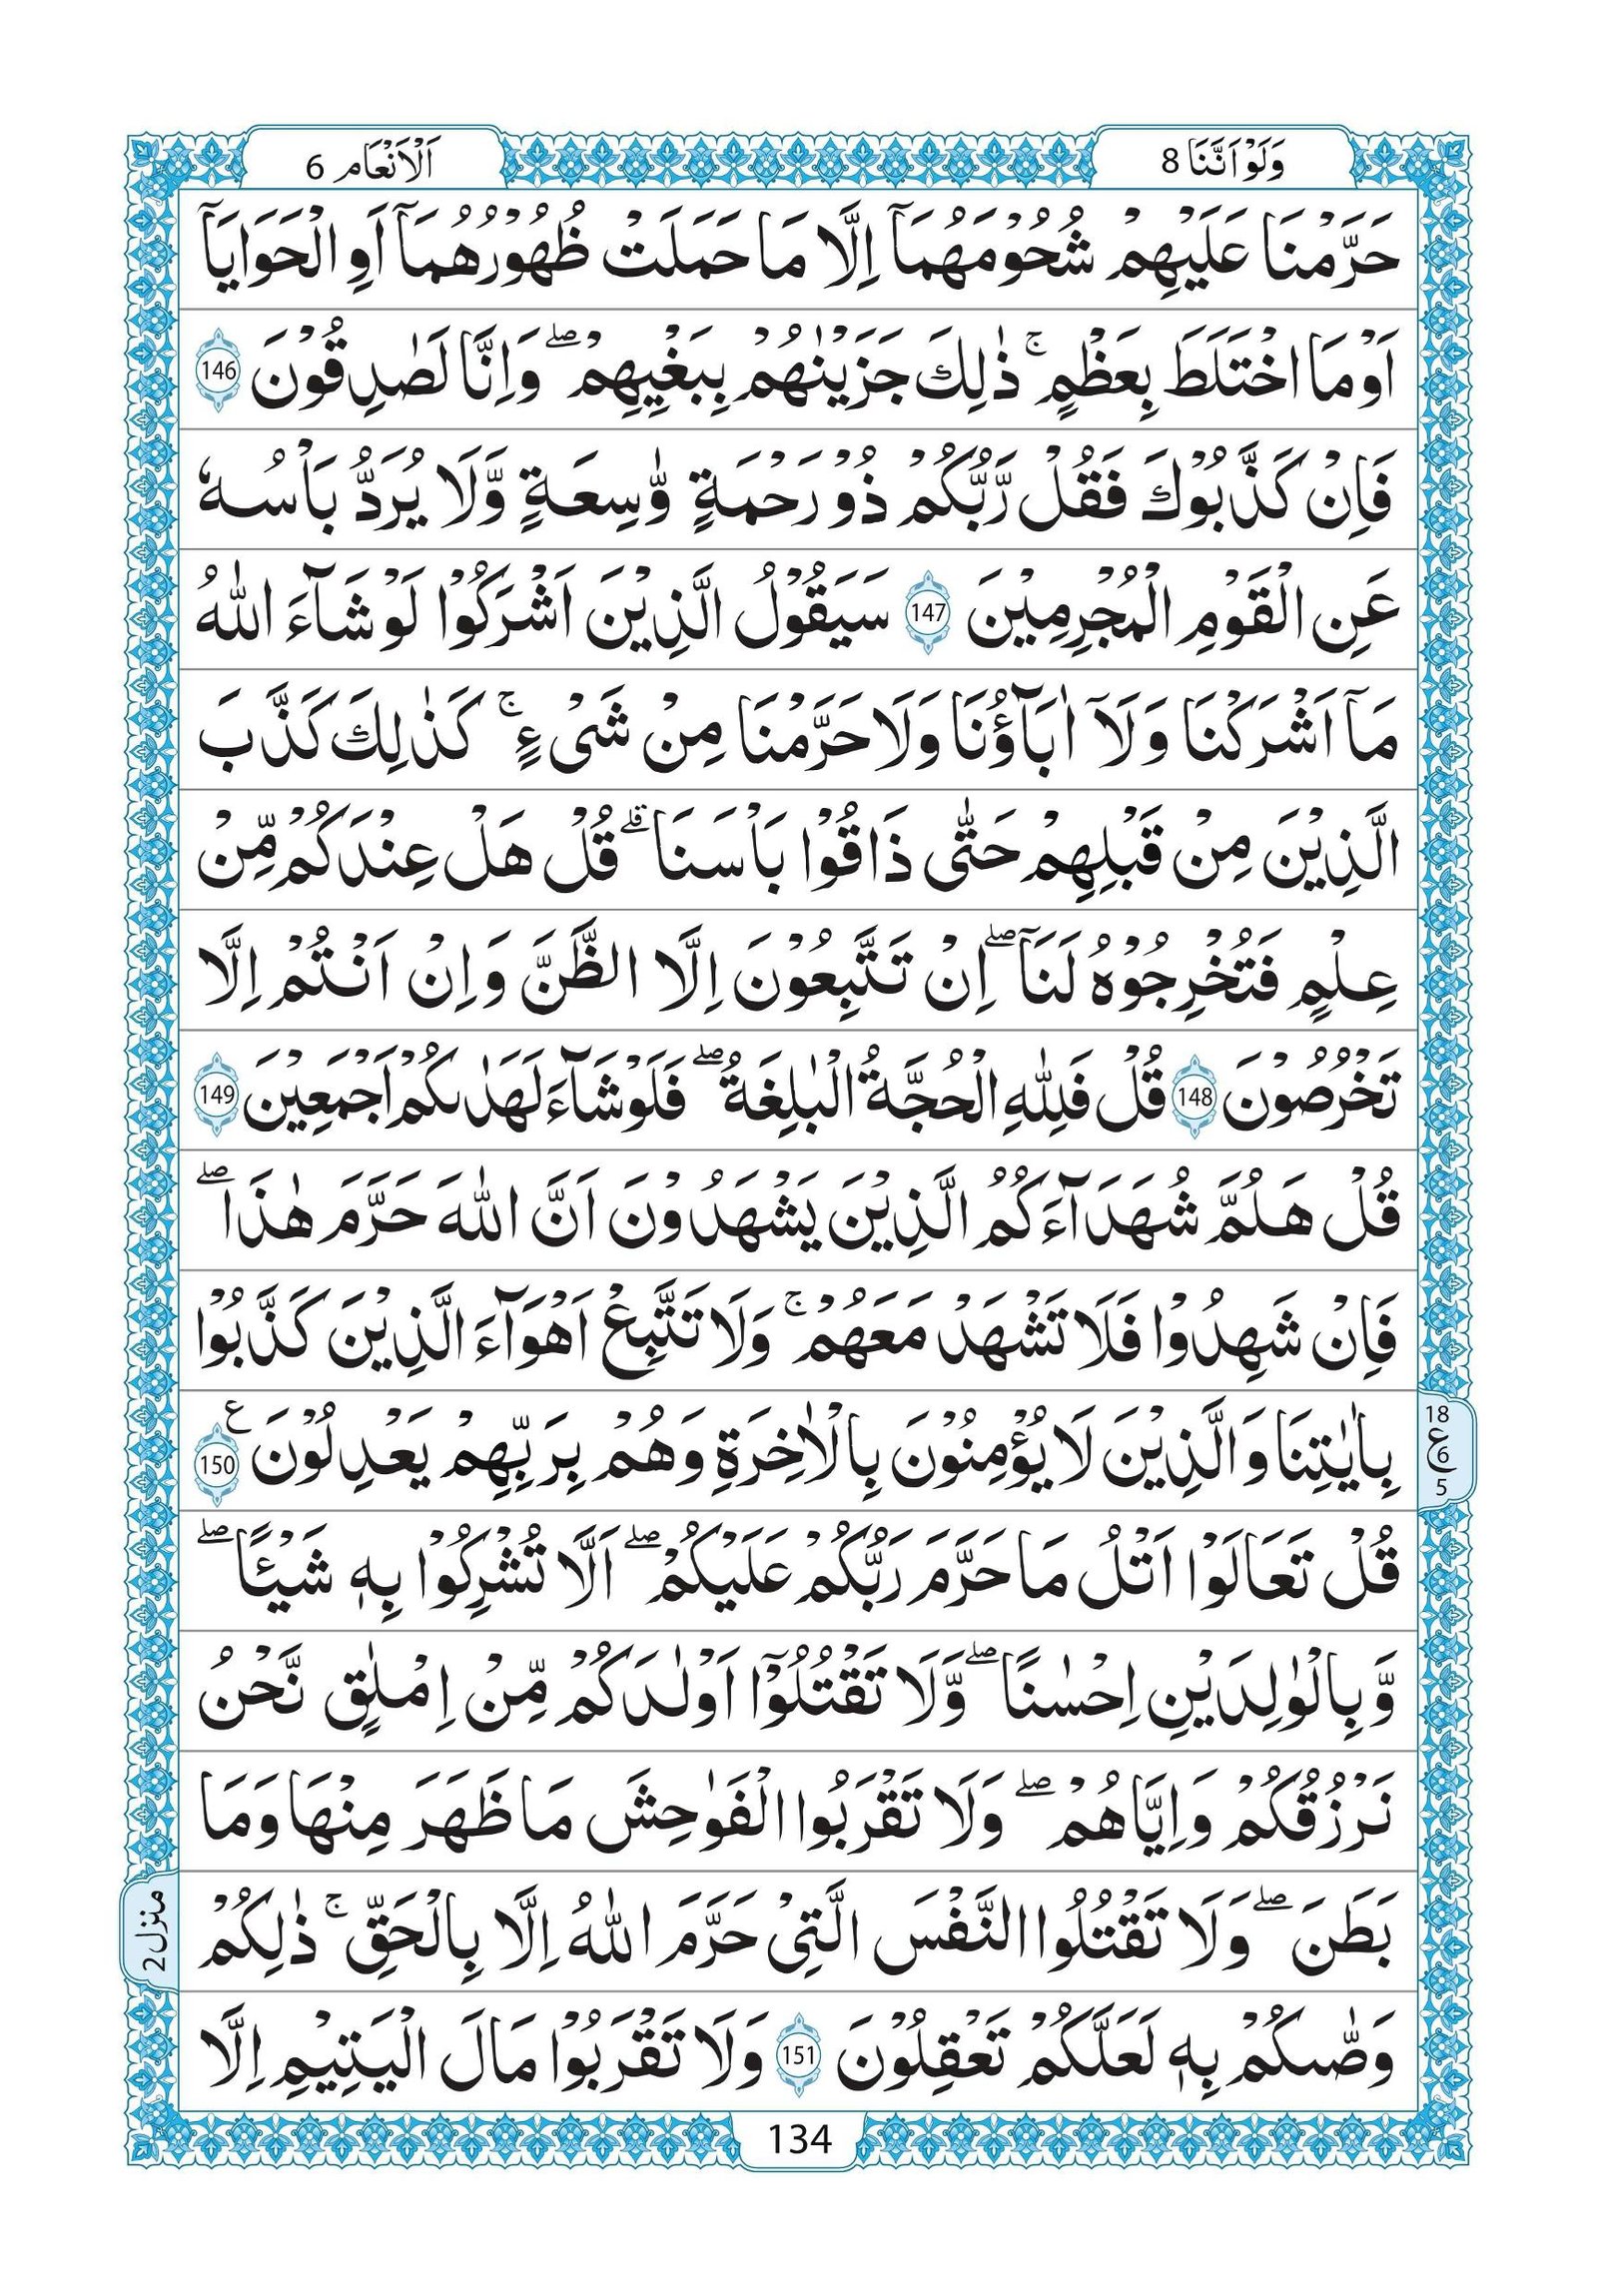 وَلَوْ اَنَّنَا 8
اَلْاَنْعَام 6
حَرَّمْنَا عَلَيْهِمْ شُحُوْمَهُمَاۤ اِلَّا مَا حَمَلَتْ ظُهُوْرُهُمَاۤ اَوِ الْحَوَايَاۤ
اَوْ مَا اخْتَلَطَ بِعَظْمٍ ۚ ذٰلِكَ جَزَيْنٰهُمْ بِبَغْيِهِمْ ۖ وَاِنَّا لَصٰدِقُوْنَ 146
فَاِنْ كَذَّبُوْكَ فَقُلْ رَّبُّكُمْ ذُوْ رَحْمَةٍ وّٰسِعَةٍ وَّلَا يُرَدُّ بَاْسُهٗ
عَنِ الْقَوْمِ الْمُجْرِمِيْنَ 147 سَيَقُوْلُ الَّذِيْنَ اَشْرَكُوْا لَوْ شَآءَ اللّٰهُ
مَاۤ اَشْرَكْنَا وَلَاۤ اٰبَآؤُنَا وَلَا حَرَّمْنَا مِنْ شَىْءٍ ۚ كَذٰلِكَ كَذَّبَ
الَّذِيْنَ مِنْ قَبْلِهِمْ حَتّٰى ذَاقُوْا بَاْسَنَا ۗ قُلْ هَلْ عِنْدَكُمْ مِّنْ
عِلْمٍ فَتُخْرِجُوْهُ لَنَاۤ ۖ اِنْ تَتَّبِعُوْنَ اِلَّا الظَّنَّ وَاِنْ اَنْتُمْ اِلَّا
تَخْرُصُوْنَ 148 قُلْ فَلِلّٰهِ الْحُجَّةُ الْبٰلِغَةُ ۖ فَلَوْ شَآءَ لَهَدٰىكُمْ اَجْمَعِيْنَ 149
قُلْ هَلُمَّ شُهَدَآءَكُمُ الَّذِيْنَ يَشْهَدُوْنَ اَنَّ اللّٰهَ حَرَّمَ هٰذَا ۖ
فَاِنْ شَهِدُوْا فَلَا تَشْهَدْ مَعَهُمْ ۚ وَلَا تَتَّبِعْ اَهْوَآءَ الَّذِيْنَ كَذَّبُوْا
بِاٰيٰتِنَا وَالَّذِيْنَ لَا يُؤْمِنُوْنَ بِالْاٰخِرَةِ وَهُمْ بِرَبِّهِمْ يَعْدِلُوْنَ ع 150
18
ع 6
5
قُلْ تَعَالَوْا اَتْلُ مَا حَرَّمَ رَبُّكُمْ عَلَيْكُمْ ۖ اَلَّا تُشْرِكُوْا بِهٖ شَيْـًٔا ۖ
وَّبِالْوٰلِدَيْنِ اِحْسٰنًا ۖ وَّلَا تَقْتُلُوْۤا اَوْلٰدَكُمْ مِّنْ اِمْلٰقٍ نَّحْنُ
نَرْزُقُكُمْ وَاِيَّاهُمْ ۖ وَلَا تَقْرَبُوا الْفَوٰحِشَ مَا ظَهَرَ مِنْهَا وَمَا
بَطَنَ ۖ وَلَا تَقْتُلُوا النَّفْسَ الَّتِىْ حَرَّمَ اللّٰهُ اِلَّا بِالْحَقِّ ۚ ذٰلِكُمْ
منزل 2
وَصّٰىكُمْ بِهٖ لَعَلَّكُمْ تَعْقِلُوْنَ 151 وَلَا تَقْرَبُوْا مَالَ الْيَتِيْمِ اِلَّا
134